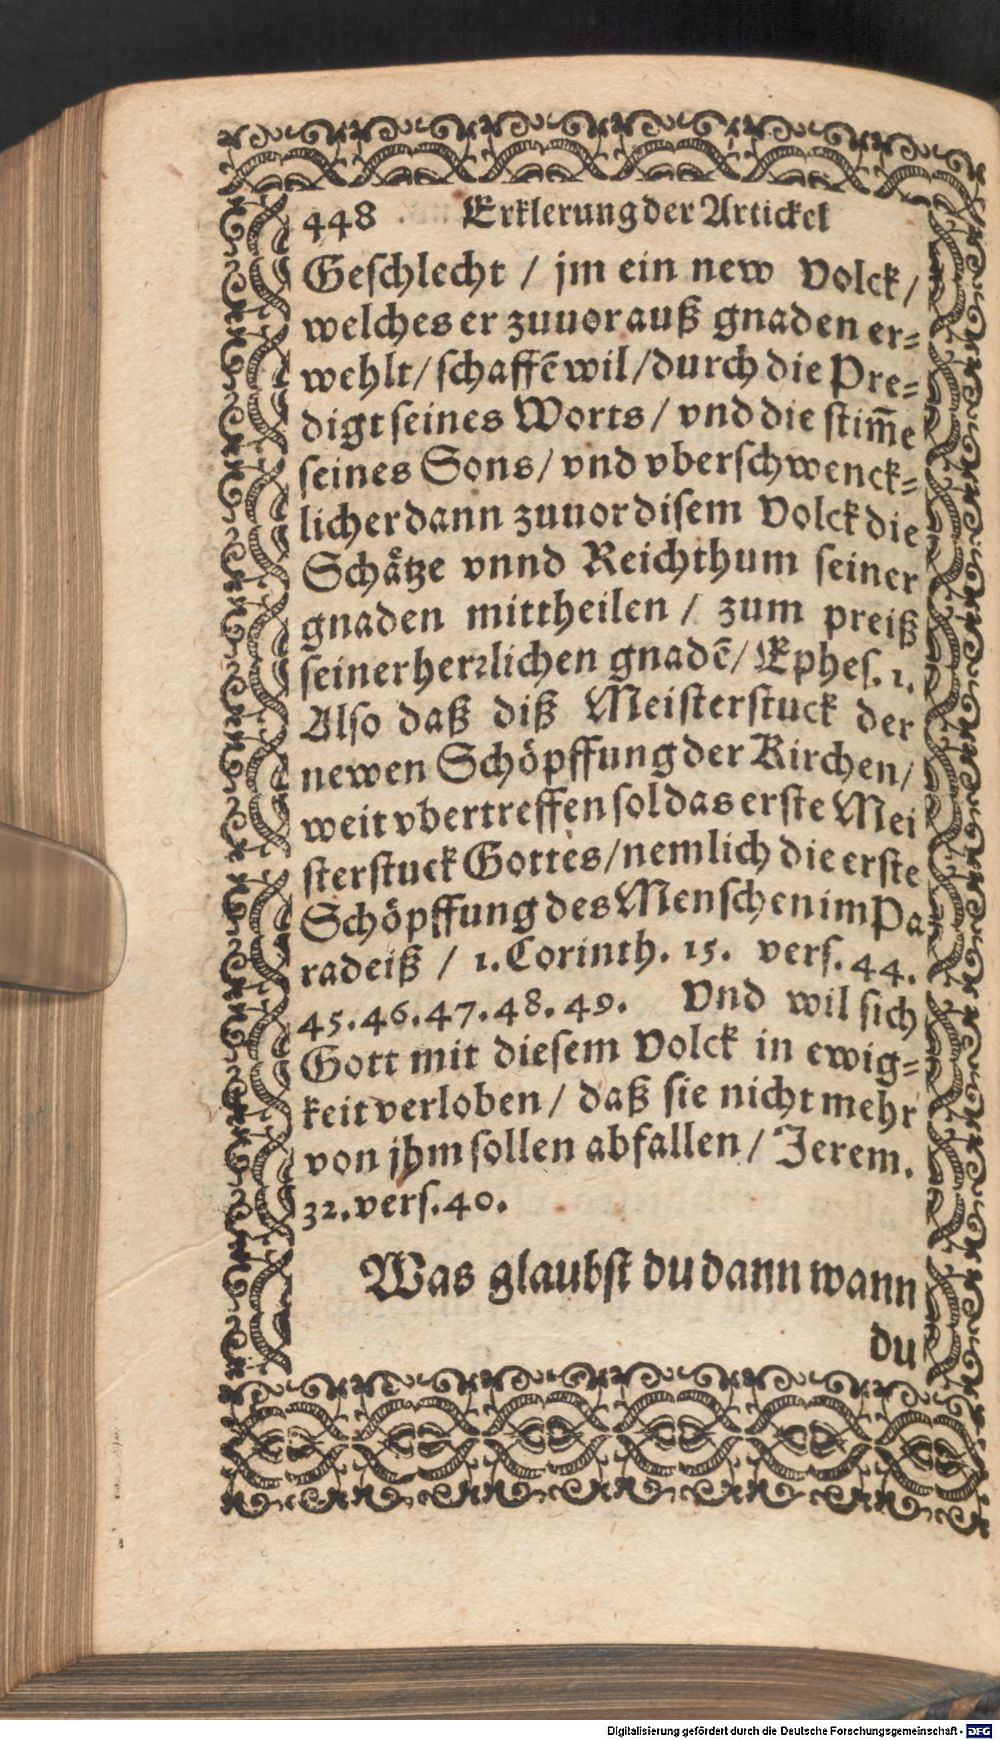 448 Erklerung der Artickel
Geschlecht / jm ein new Volck /
welches er zuuor auß gnaden er-
wehlt / schaffē wil / durch die Pre-
digt seines Worts / vnd die stim̄e
seines Sons / vnd vberschwenck-
licher dann zuuor disem Volck die
Schaͤtze vnnd Reichthum seiner
gnaden mittheilen / zum preiß
seiner herꝛlichen gnadē / Ephes. 1.
Also daß diß Meisterstuck der
newen Schöpffung der Kirchen /
weit vbertreffen sol das erste Mei
sterstuck Gottes / nemlich die erste
Schöpffung des Menschen im Pa
radeiß / 1. Corinth. 15. vers. 44.
45. 46. 47. 48. 49. Vnd wil sich
Gott mit diesem Volck in ewig-
keit verloben / daß sie nicht mehr
von jhm sollen abfallen / Jerem.
32. vers. 40.
Was glaubst du dann wann
du
Digitalisierung gefördert durch die Deutsche Forschungsgemeinschaft - DFG